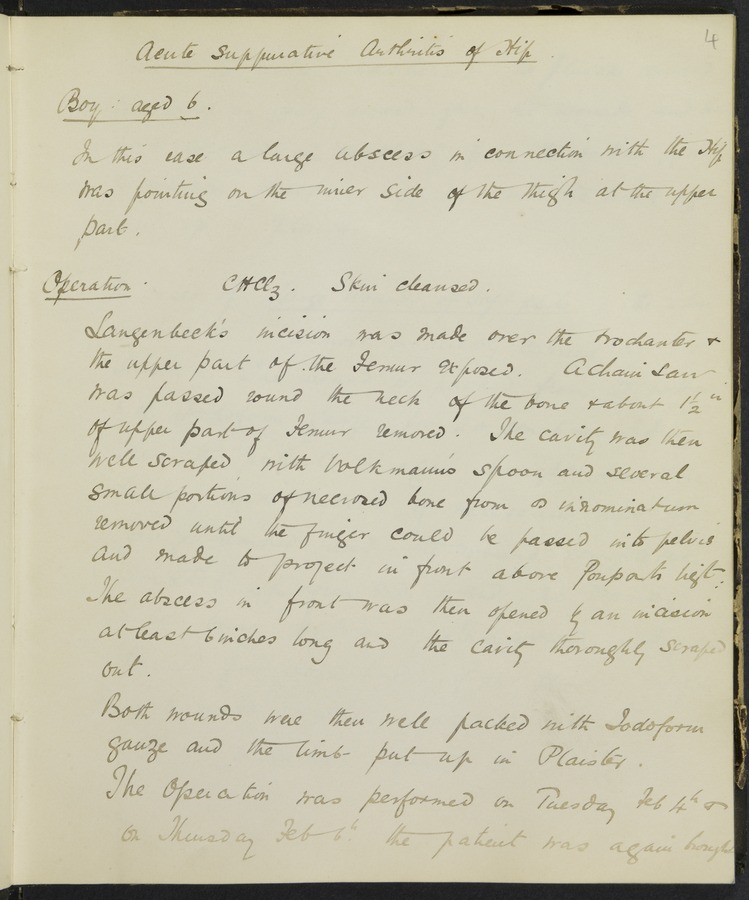 4
Acute Suppurative Arthritis of Hip.
Boy: aged 6.
In this case a large abscess in connection with the Hip
was pointing on the inner side of the thigh at the upper
part.
Operation. CHCl3. Skin cleansed.
Langenbeck's incision was made over the trochanter &
the upper part of the Femur exposed. A chain saw
was passed round the neck of the bone & about 1½ in
of upper part of Femur removed. The cavity was then
well scraped with Volkmann's spoon and several
small portions of necrosed bone from os innominatum
removed until the finger could be passed into pelvis
and made to project in front above Poupart's ligt.
The abscess in front was then opened by an incision
at least 6 inches long and the cavity thoroughly scraped
out.
Both wounds were then well packed with Iodoform
gauze and the limb put up in Plaister.
The Operation was performed on Tuesday Feb 4th &
on Thursday Feb 6th. the patient was again brought